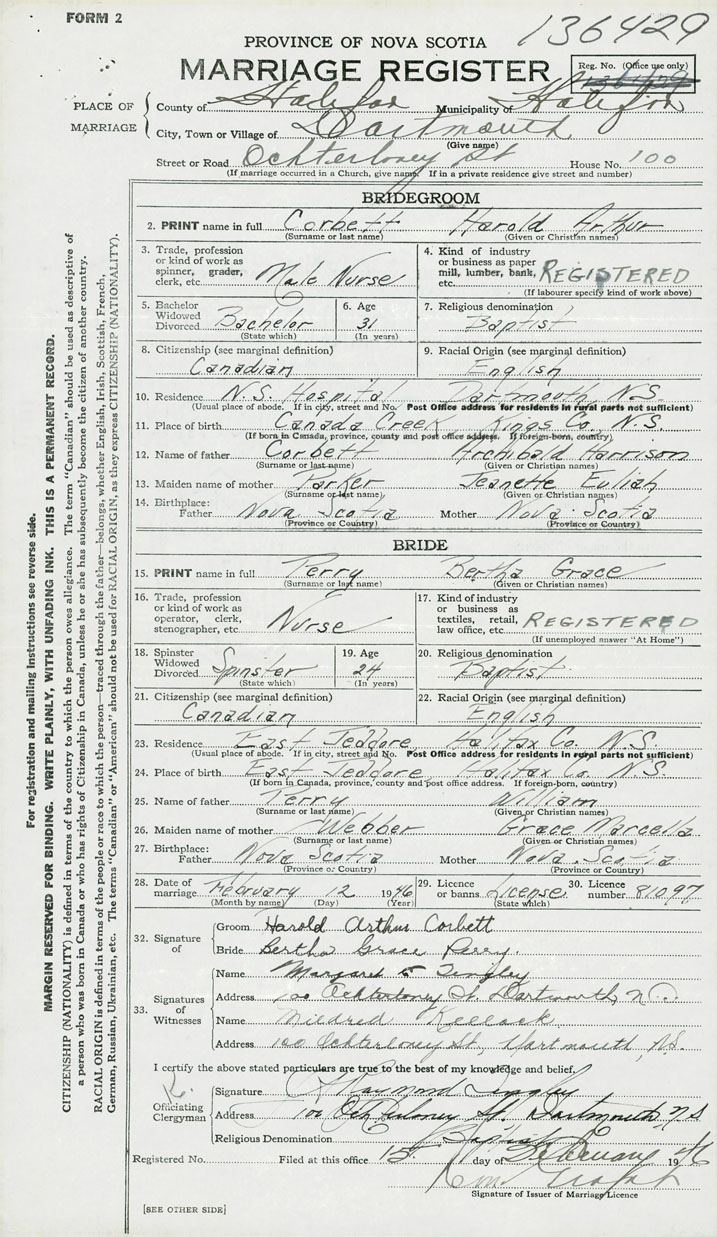 FORM 2
136429
PROVINCE OF NOVA SCOTIA
MARRIAGE REGISTER
Reg. No. (Office use only)
136429
PLACE OF MARRIAGE
County of Halifax Municipality of Halifax
City, Town or Village of Dartmouth
(Give name)
Street or Road Ochterloney St House No. 100
(If marriage occurred in a Church, give name. If in a private residence give street and number)
BRIDEGROOM
2. PRINT name in full Corbett Harold Arthur
(Surname or last name) (Given or Christian names)
3. Trade, profession or kind of work as spinner, grader, clerk, etc. Male Nurse
4. Kind of industry or business as paper mill, lumber, bank, etc. REGISTERED
(If labourer specify kind of work above)
5. Bachelor Widowed Divorced Bachelor
(State which)
6. Age 31
(In years)
7. Religious denomination Baptist
8. Citizenship (see marginal definition) Canadian
9. Racial Origin (see marginal definition) English
10. Residence N.S. Hospital Dartmouth, N.S.
(Usual place of abode. If in city, street and No. Post Office address for residents in rural parts not sufficient)
11. Place of birth Canada Creek Kings Co. N.S.
(If born in Canada, province, county and post office address. If foreign-born, country)
12. Name of father Corbett Archibald Harrison
(Surname or last name) (Given or Christian names)
13. Maiden name of mother Parker Jeanette Euliah
(Surname or last name) (Given or Christian names)
14. Birthplace: Father Nova Scotia Mother Nova Scotia
(Province or Country) (Province or Country)
BRIDE
15. PRINT name in full Perry Bertha Grace
(Surname or last name) (Given or Christian names)
16. Trade, profession or kind of work as operator, clerk, stenographer, etc. Nurse
17. Kind of industry or business as textiles, retail, law office, etc. REGISTERED
(If unemployed answer "At Home")
18. Spinster Widowed Divorced Spinster
(State which)
19. Age 24
(In years)
20. Religious denomination Baptist
21. Citizenship (see marginal definition) Canadian
22. Racial Origin (see marginal definition) English
23. Residence East Jeddore, Halifax Co. N.S.
(Usual place of abode. If in city, street and No. Post Office address for residents in rural parts not sufficient)
24. Place of birth East Jeddore, Halifax Co. N.S.
(If born in Canada, province, county and post office address. If foreign-born, country)
25. Name of father Perry William
(Surname or last name) (Given or Christian names)
26. Maiden name of mother Webber Grace Marcella
(Surname or last name) (Given or Christian names)
27. Birthplace: Father Nova Scotia Mother Nova Scotia
(Province or Country) (Province or Country)
28. Date of marriage February 12 1946
(Month by name) (Day) (Year)
29. Licence or banns License
(State which)
30. Licence number 81097
32. Signature of
Groom Harold Arthur Corbett
Bride Bertha Grace Perry.
33. Signatures of Witnesses
Name Margaret Tingley
Address 100 Ochterloney St. Dartmouth, N.S.
Name Mildred Kellock
Address 100 Ochterloney St., Dartmouth, N.S.
I certify the above stated particulars are true to the best of my knowledge and belief,
Officiating Clergyman
Signature Raymond Tingley
Address 100 Ochterloney St. Dartmouth, N.S
Religious Denomination Baptist
Registered No. Filed at this office 15 day of February 1946
Signature of Issuer of Marriage Licence
[SEE OTHER SIDE]
For registration and mailing instructions see reverse side.
MARGIN RESERVED FOR BINDING. WRITE PLAINLY, WITH UNFADING INK. THIS IS A PERMANENT RECORD.
CITIZENSHIP (NATIONALITY) is defined in terms of the country to which the person owes allegiance. The term "Canadian" should be used as descriptive of
a person who was born in Canada or who has rights of Citizenship in Canada, unless he or she has subsequently become the citizen of another country.
RACIAL ORIGIN is defined in terms of the people or race to which the person—traced through the father—belongs, whether English, Irish, Scottish, French,
German, Russian, Ukrainian, etc. The terms "Canadian" or "American" should not be used for RACIAL ORIGIN, as they express CITIZENSHIP (NATIONALITY).